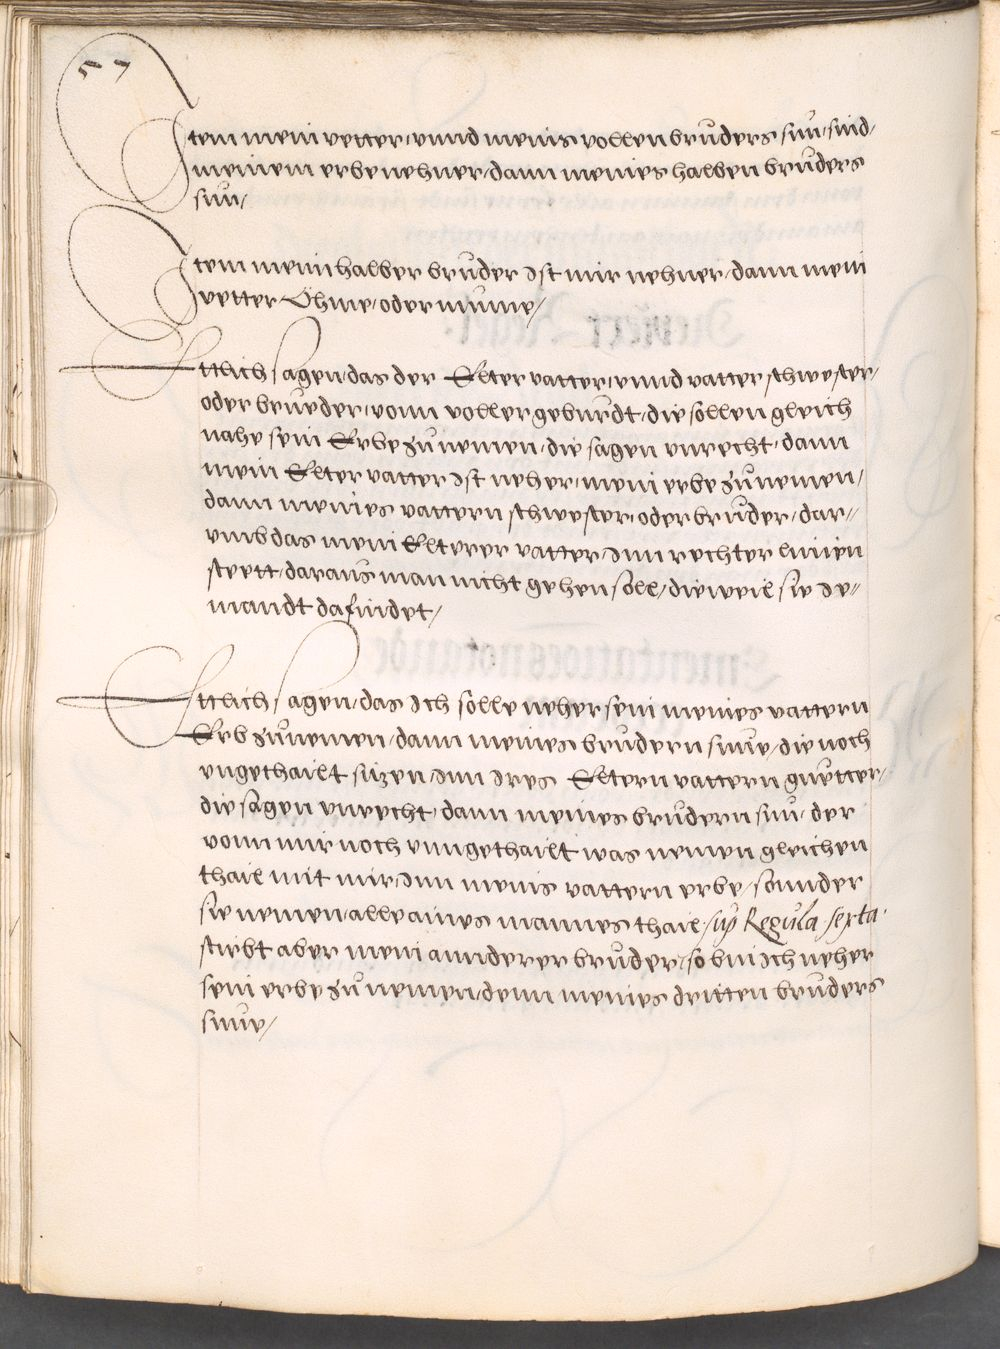 57
Item mein vetter, vnnd meins vollen bruders sun, sind,
meinem erbe nehner, dann meines halben bruders
sun,
Item mein halber bruder Ist mir nehner, dann mein
vetter Öhme, oder mume,
Ettlich sagen, das der Elter vatter, vnnd vatter schwester,
oder brueder, vonn voller geburdt, die sollen gleich
nahe sein Erbe zu nemen, die sagen vnrecht, dann
mein Elter vatter Ist neher, mein erbe zu nemen,
dann meines vattern schwester, oder bruder, dar=
vmb das mein Elterer vatter Inn rechter linien
steett, daraus man nicht gehen soll, dieweil sie Je=
mandt da findet,
Ettlich sagen, das Ich solle neher sein meines vattern
Erb zu nemen, dann meines brudern sune, die noch
vngethailt sizen, Inn Ires Eltern vattern guetter,
die sagen vnrecht, dann meines brudern sun, der
vonn mir noch vnngethailt was nemen gleichen
thail mit mir, Inn meins vattern erbe, sonnder
sie nemen, alle aines mannes thail, sup Regula sexta.
stirbt aber mein annderer bruder, so bin Ich neher
sein erbe zu nemen, denn meines dritten bruders
sune,